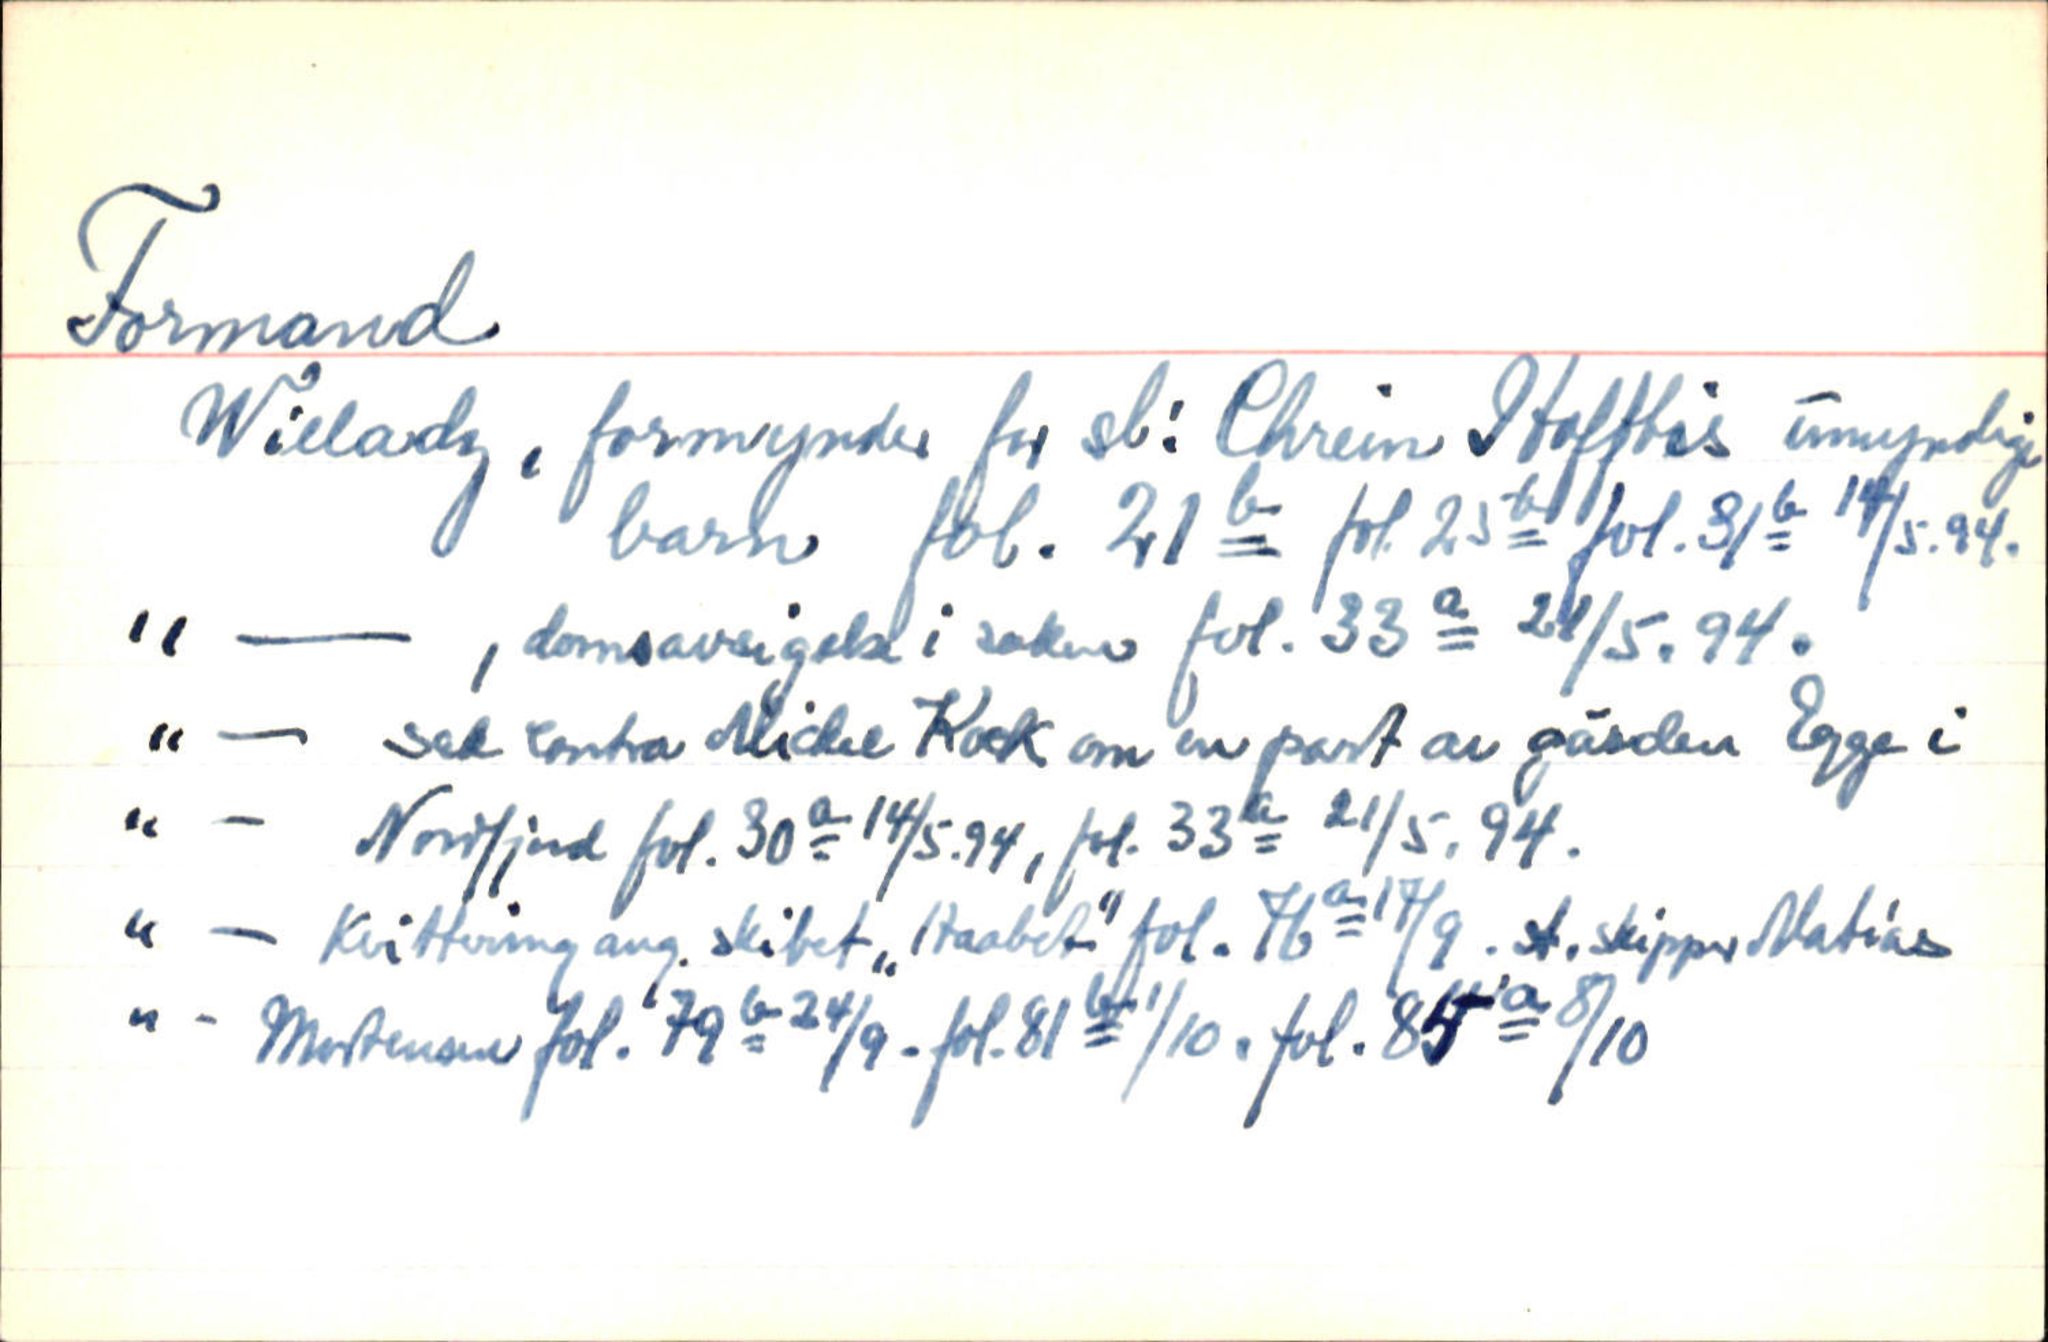 Formand
Willadz, formynder for sl: Chrein Stofftis ūmyndige
barn fol. 21 b fol. 25 b fol. 31 b 14/5.94.
" — , domsavsigelse i saken fol. 33 a 21/5.94.
" — sak contra Mickel Kock om en part av gården Egge i
" — Nordfjord fol. 30 a 14/5.94, fol. 33 a 21/5.94.
" — Kvittering ang. skibet „Haabet" fol. 76 a 17/9. st. skipper Matias
" - Mortensen fol. 79 b 24/9. fol. 81 b 1/10. fol. 85 a 8/10